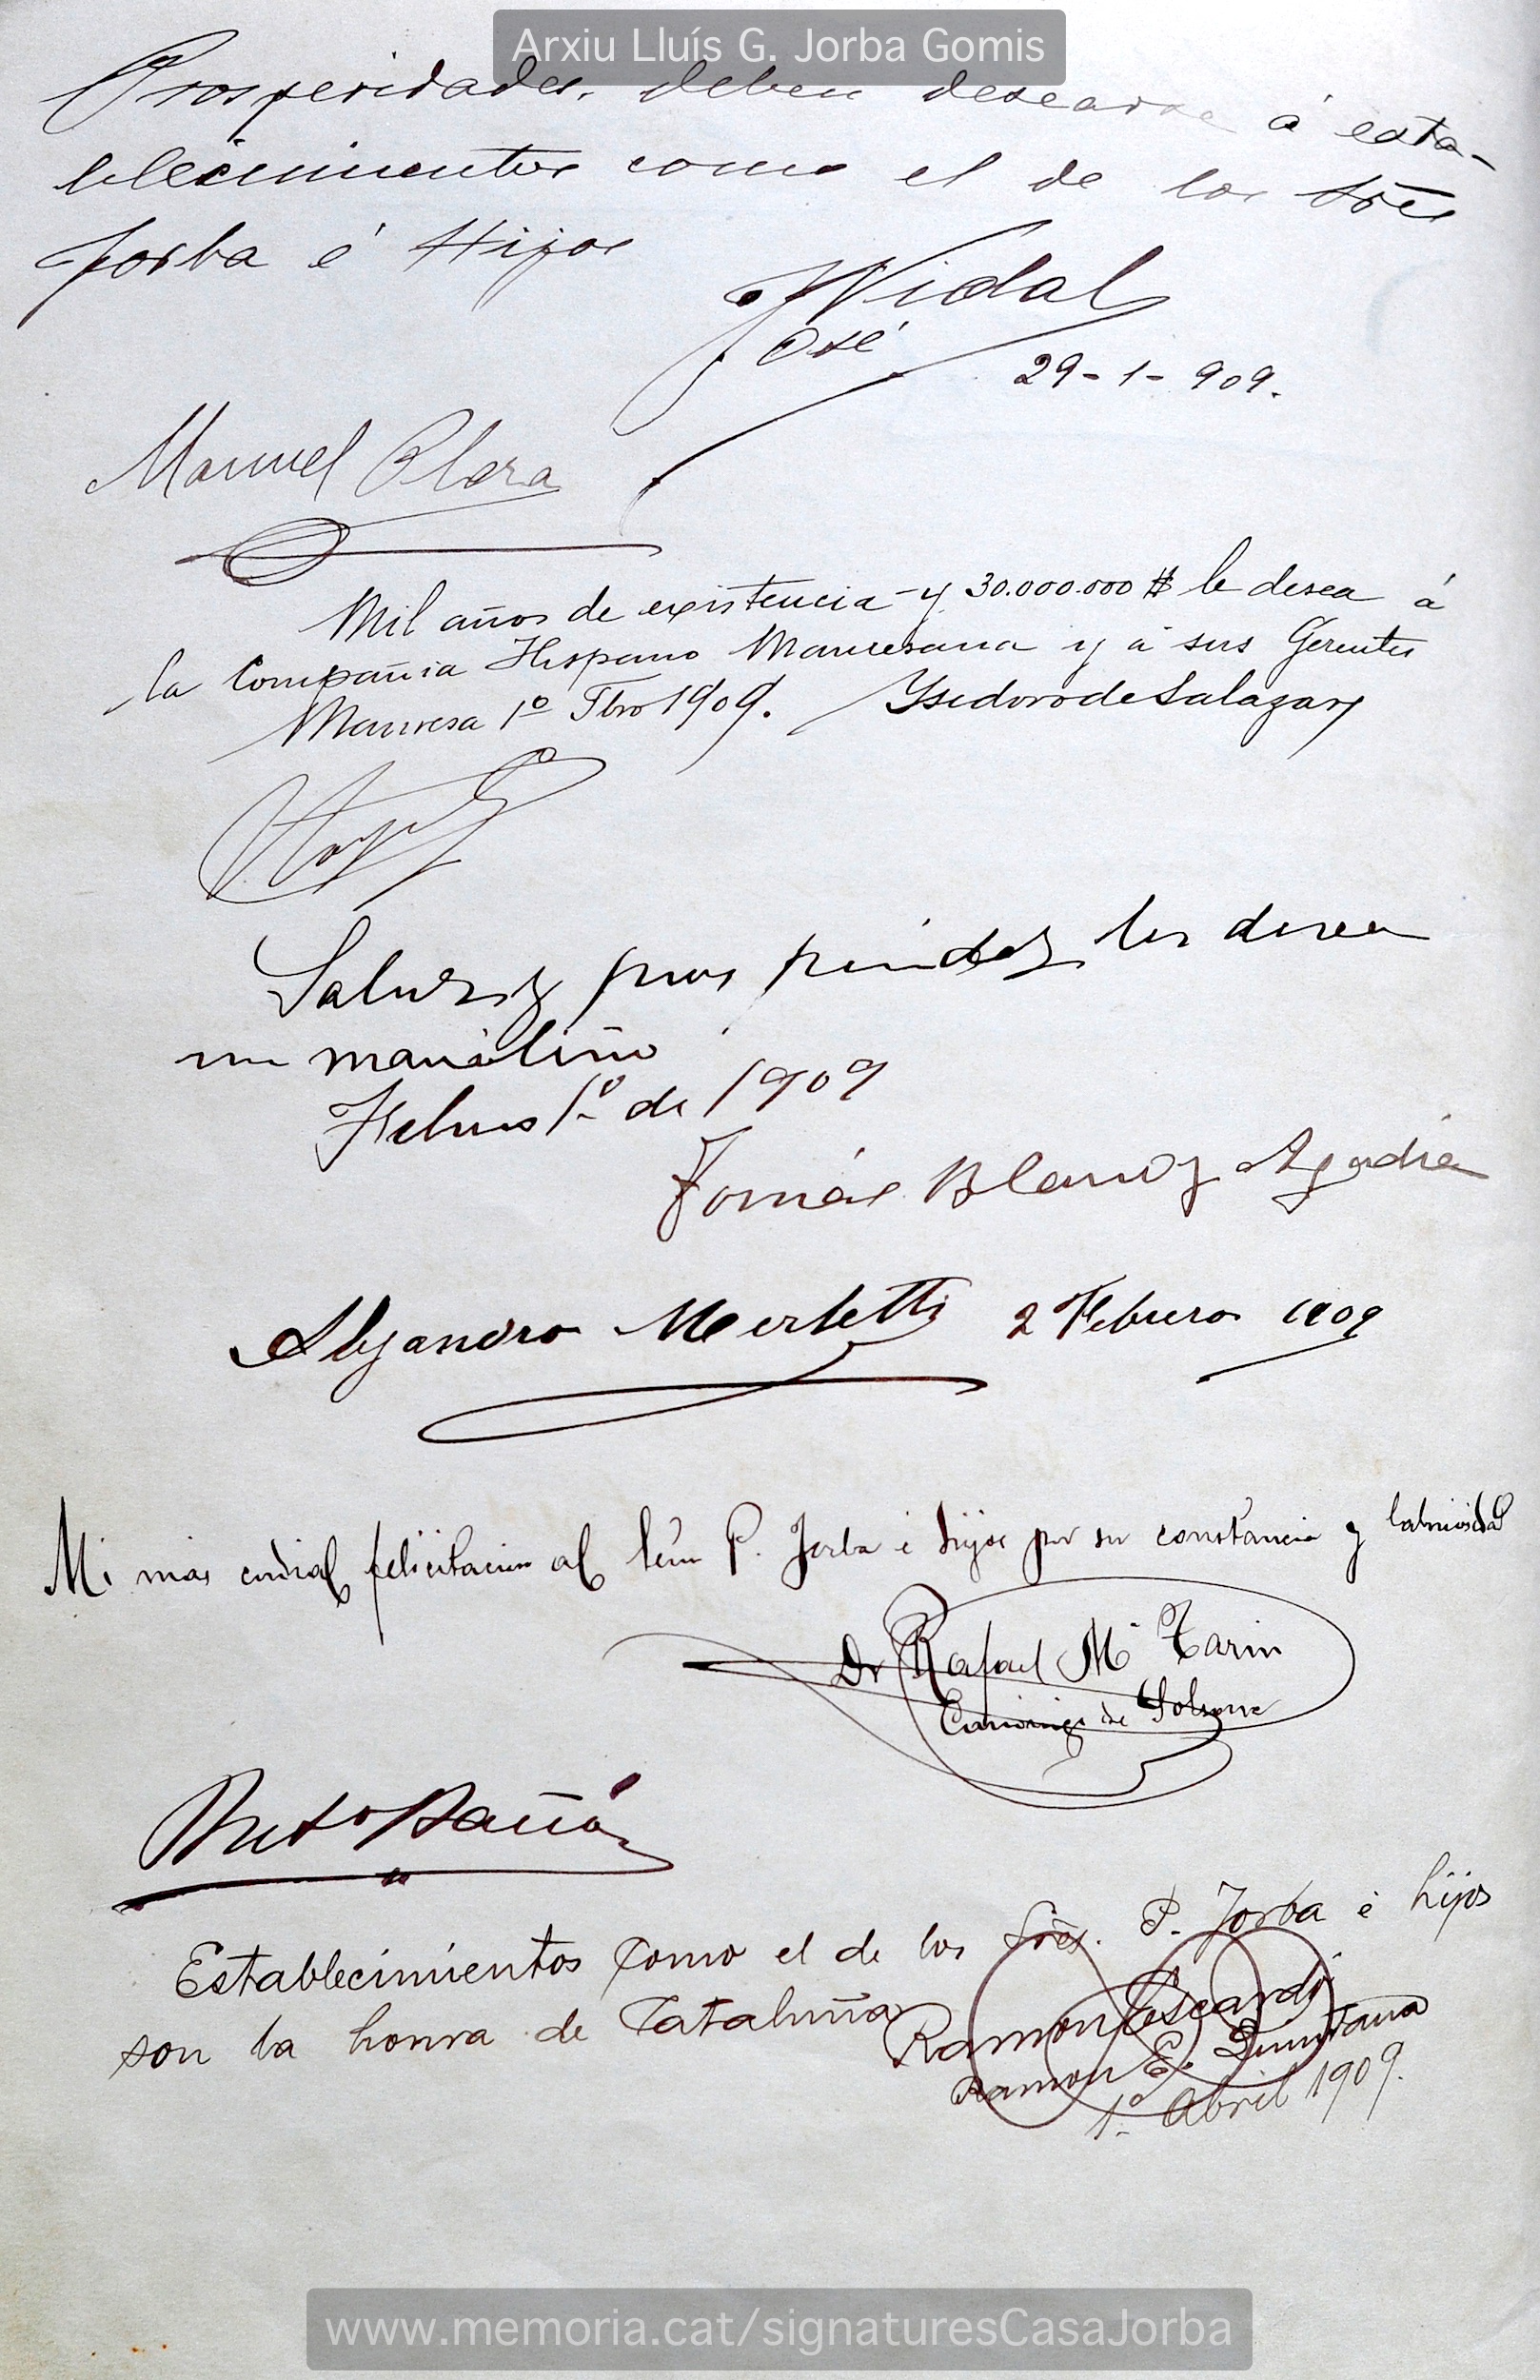 Arxiu Lluís G. Jorba Gomis
Prosperidades, deben desearse á esta-
blecimientos como el de los Sres
Jorba é Hijos
J Vidal
José
29-1-909.
Manuel
Mil años de existencia y 30.000.000 $ le desea á
la Compañia Hispano Manresana y á sus Gerentes
Manresa 1º Fbro 1909. Ysidoro de Salazar
Salud y prosperidad les desea
un
Febrero 1º de 1909
Tomás Blanco y
Alejandro Merletti 2 Febrero 1909
Mi más cordial felicitacion al P. Jorba é hijos por su constancia y laboriosidad
Dr Rafael Mª Tarin
Canónigo de Solsona
Establecimientos como el de los Sres. P. Jorba é hijos
son la honra de Cataluña
Ramon Escardi
Ramon E. Quintana
1º Abril 1909.
www.memoria.cat/signaturesCasaJorba